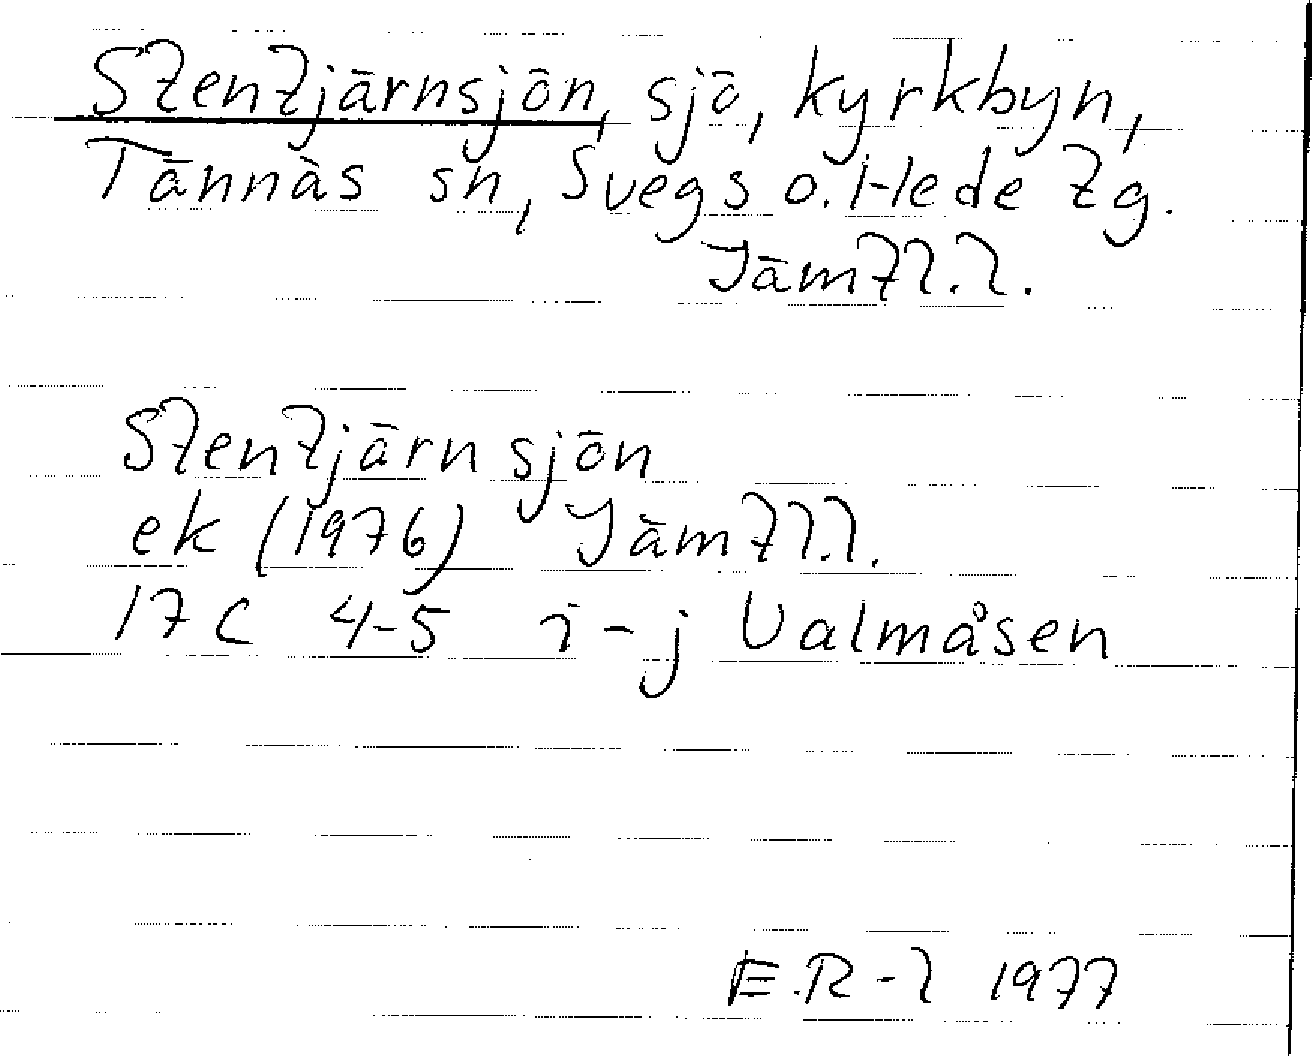 Stentjärnsjön, sjö, kyrkbyn,
Tännäs sn, Svegs o. Hede tg.
Jämtl.l.
Stentjärnsjön
ek (1976) Jämtl.l.
17C 4-5 i-j Valmåsen
E.R-l 1977